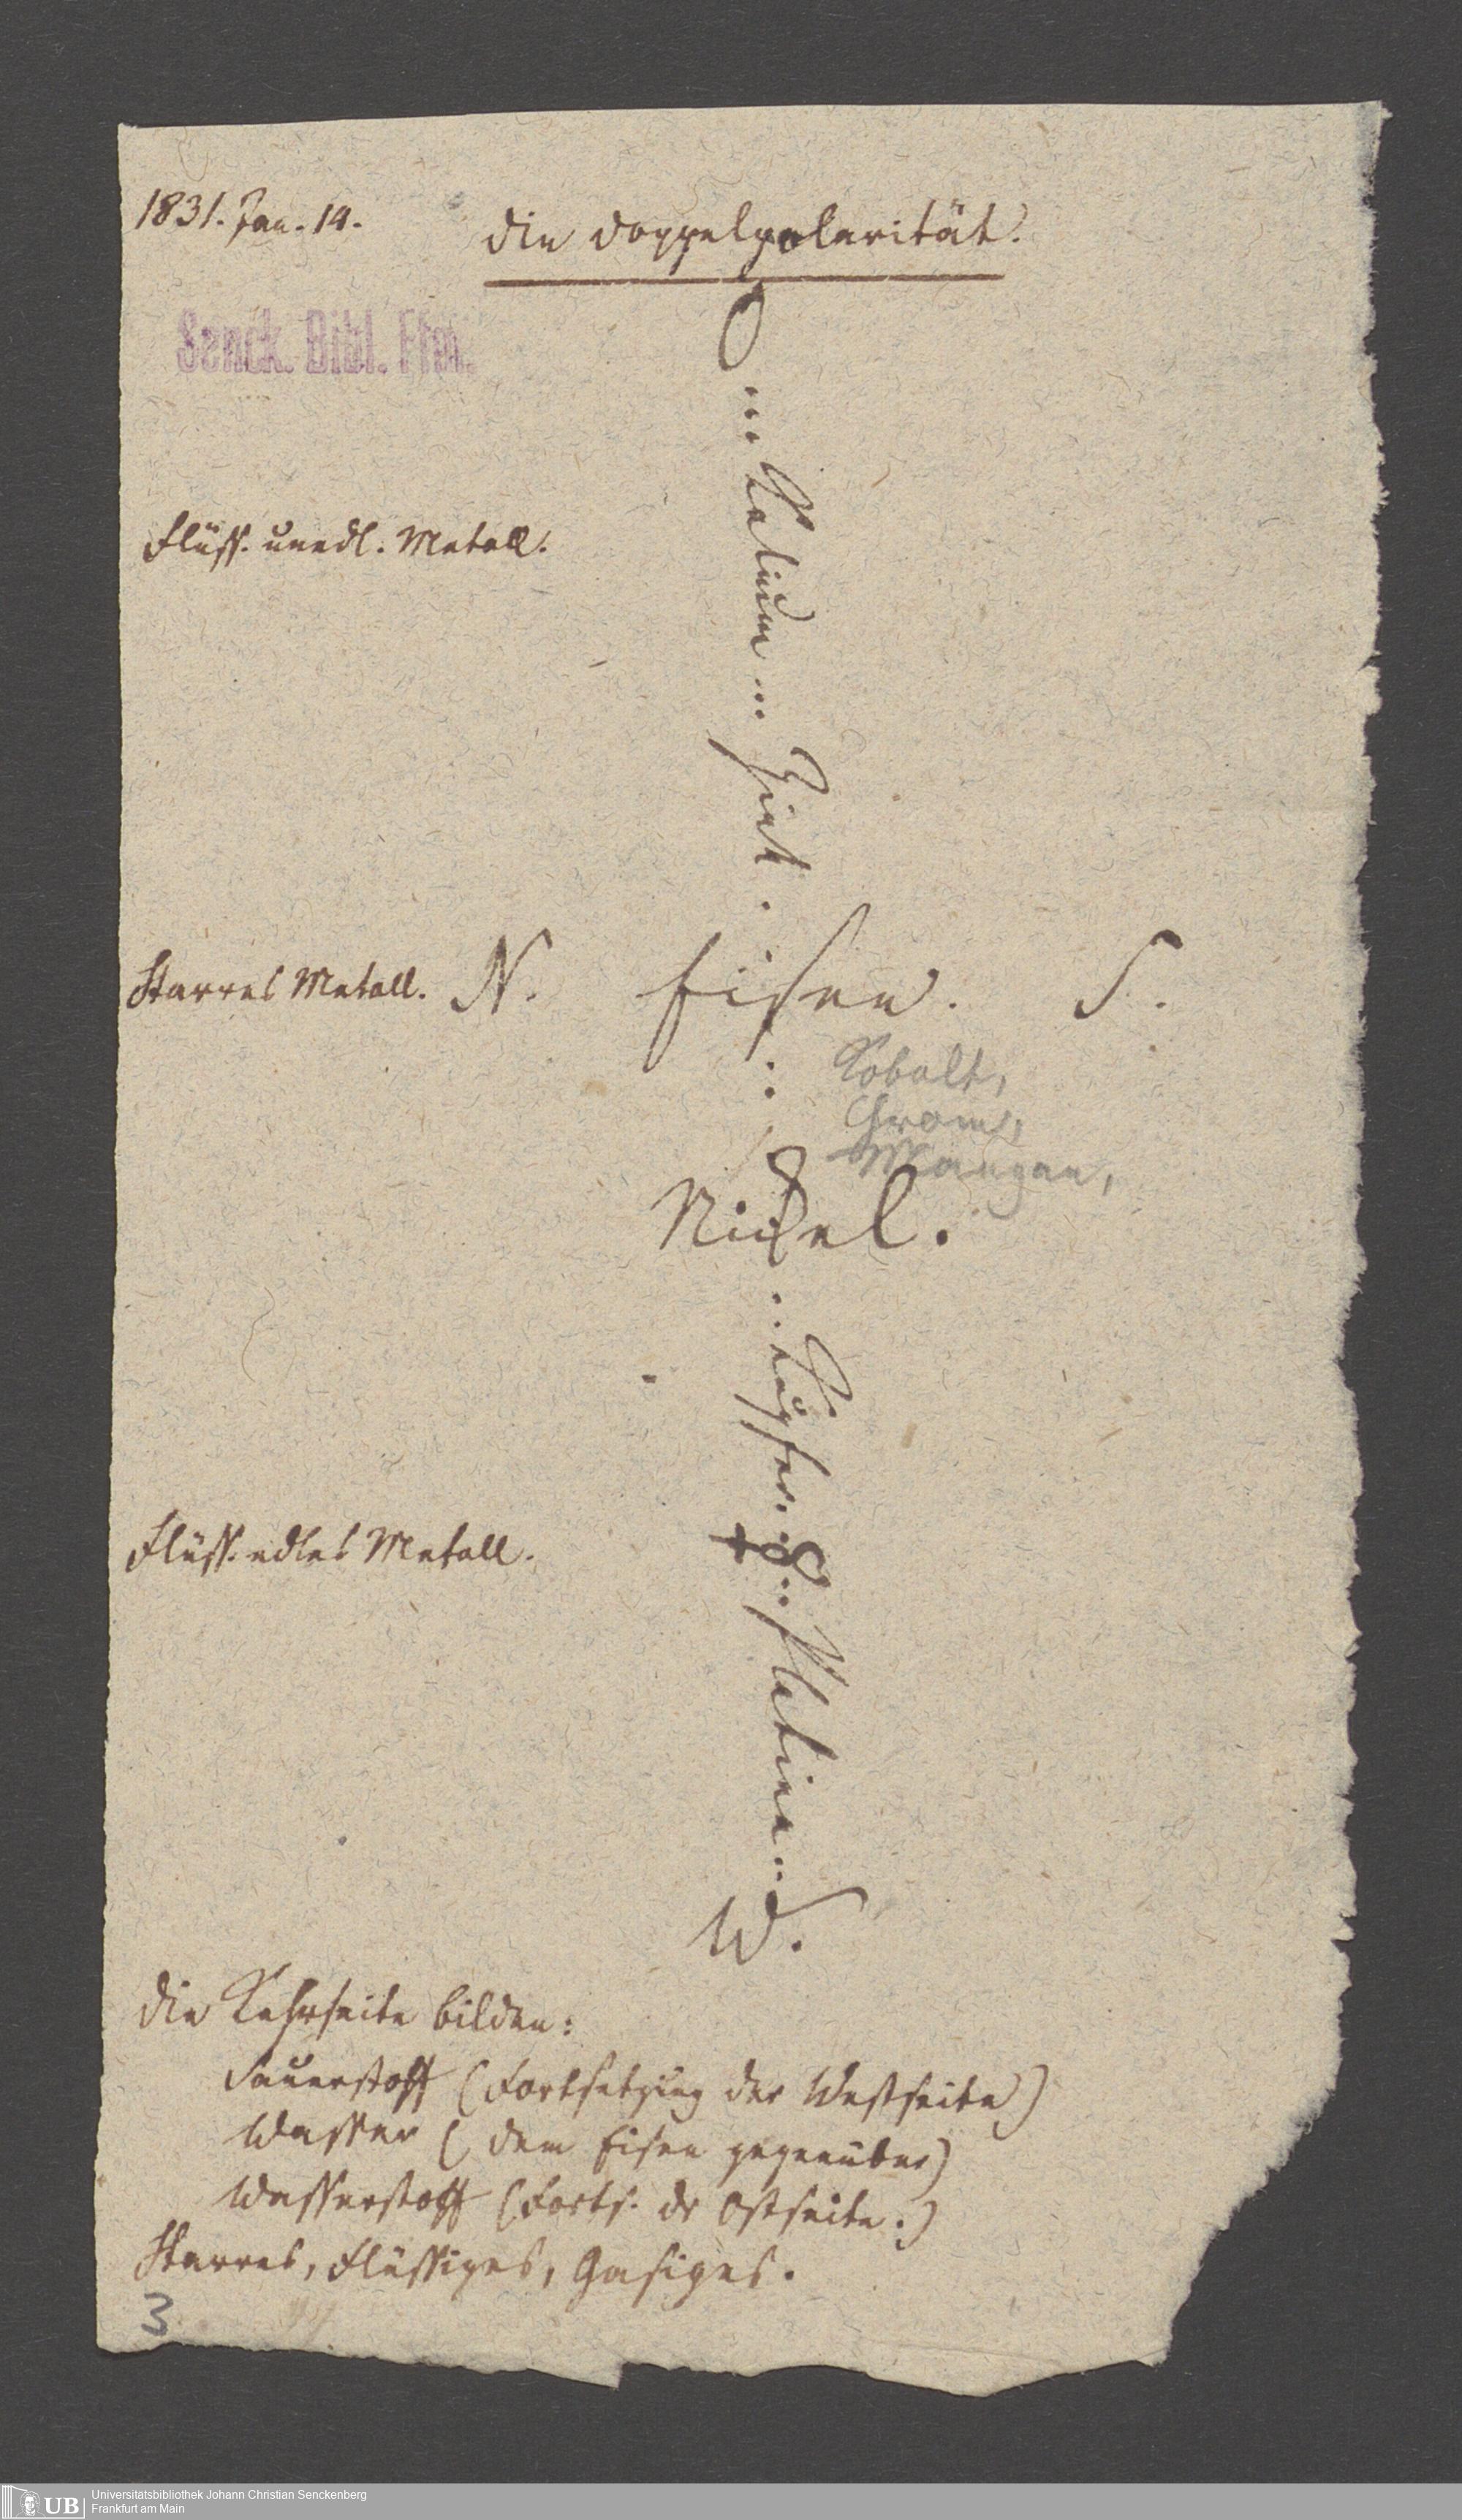 1831. Jan. 14.
die Doppelpolarität.
Senck. Bibl. Ffm.
O
... Kalium ... Zink .
Flüss. unedl. Metall.
Starres Metall. N. Eisen. S.
Kobalt,
Chrom,
Mangan,
Nickel.
.. Kupfer. ... Platina ..
Flüss. edles Metall.
W.
die Kehrseite bilden:
Sauerstoff (Fortsetzung der Westseite)
Wasser ( dem Eisen gegenüber)
Wasserstoff (Forts. dr Ostseite.)
Starres, Flüssiges, Gasiges.
3
UB
Universitätsbibliothek Johann Christian Senckenberg
Frankfurt am Main